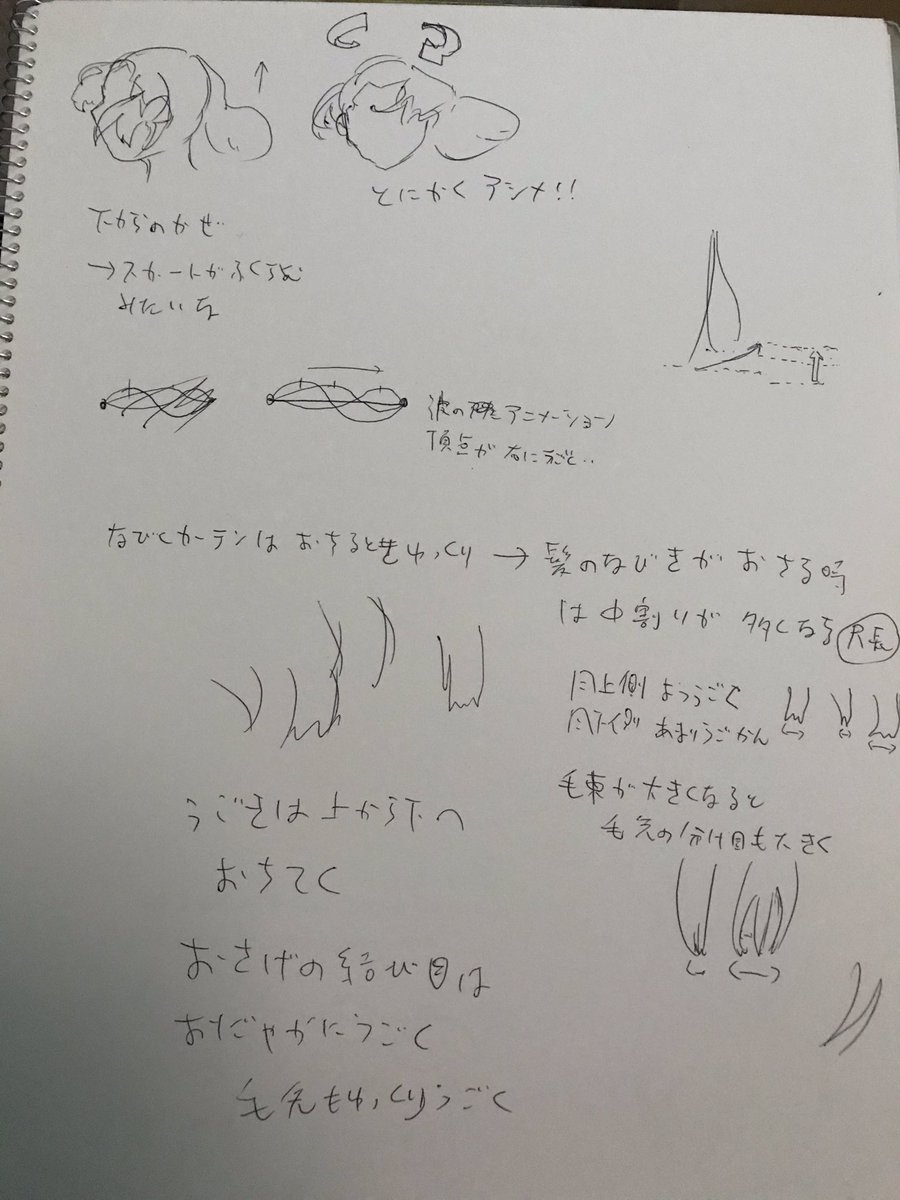 とにかく アニメ!!
下からのかぜ
→スカートがふくらむ
みたいな
波の アニメーション
頂点が右にうごく..
なびくカーテンは おちるときゆっくり → 髪のなびきがおさる時
は中割りが多くなる 尺長
上側 ようごく
下側 あまりうごかん
毛束が大きくなると
毛先の分け目も大きく
うごきは上から下へ
おちてく
おさげの結び目は
おだやかにうごく
毛先もゆっくりうごく